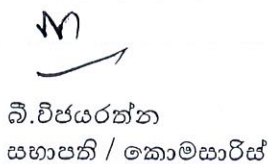 බී.විජයරත්න
සභාපති / කොමසාරිස්